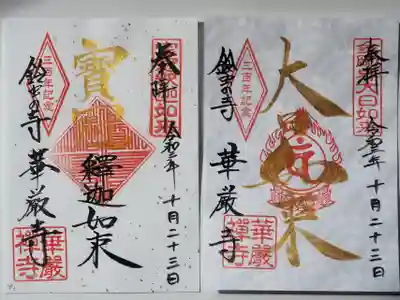 奉拝
令和二年十月二十三日
寶
釋迦如来
三百年記念
鈴虫の寺 華厳寺
華嚴禪寺
奉拝
大日如来
令和二年十月二十三日
大
来
三百年記念
鈴虫の寺 華厳寺
華嚴禪寺